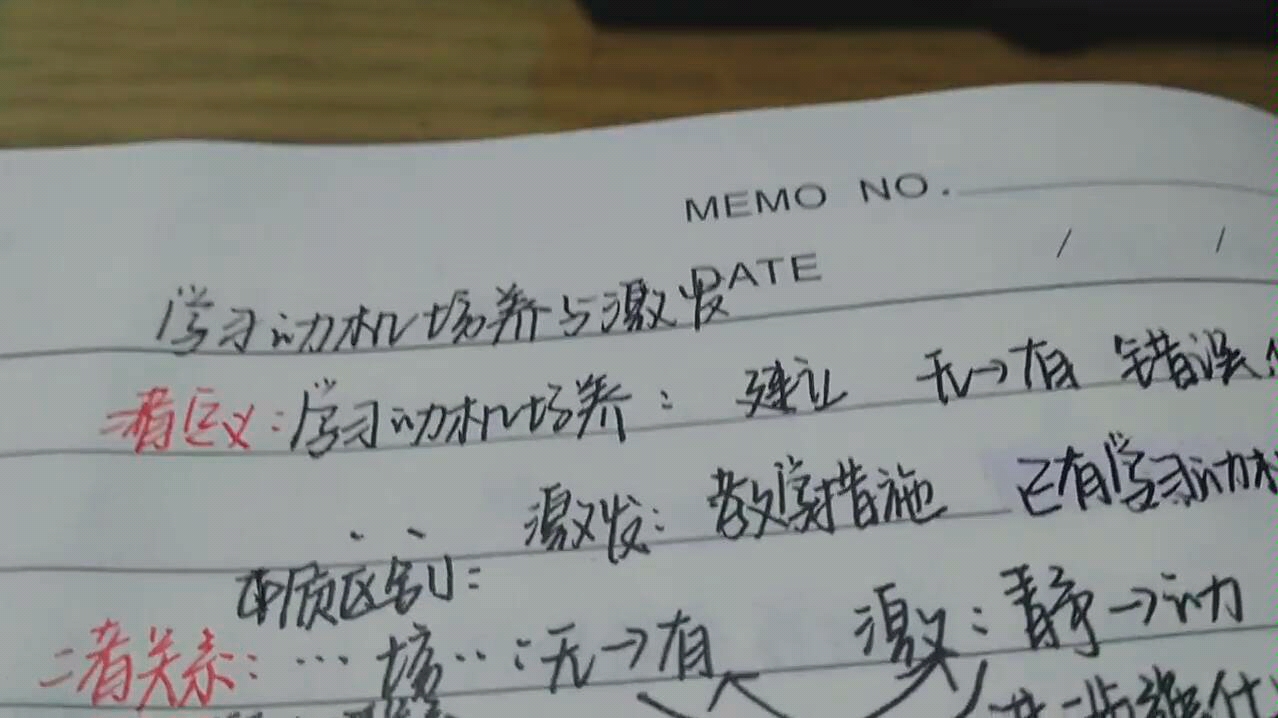 MEMO NO.
DATE / /
学习动机培养与激发
二者区义:学习动机培养: 建让 无→有 错误
激发: 教学措施 已有学习动机
本质区别:
二者关系:… 培‥:无→有 激:静→动